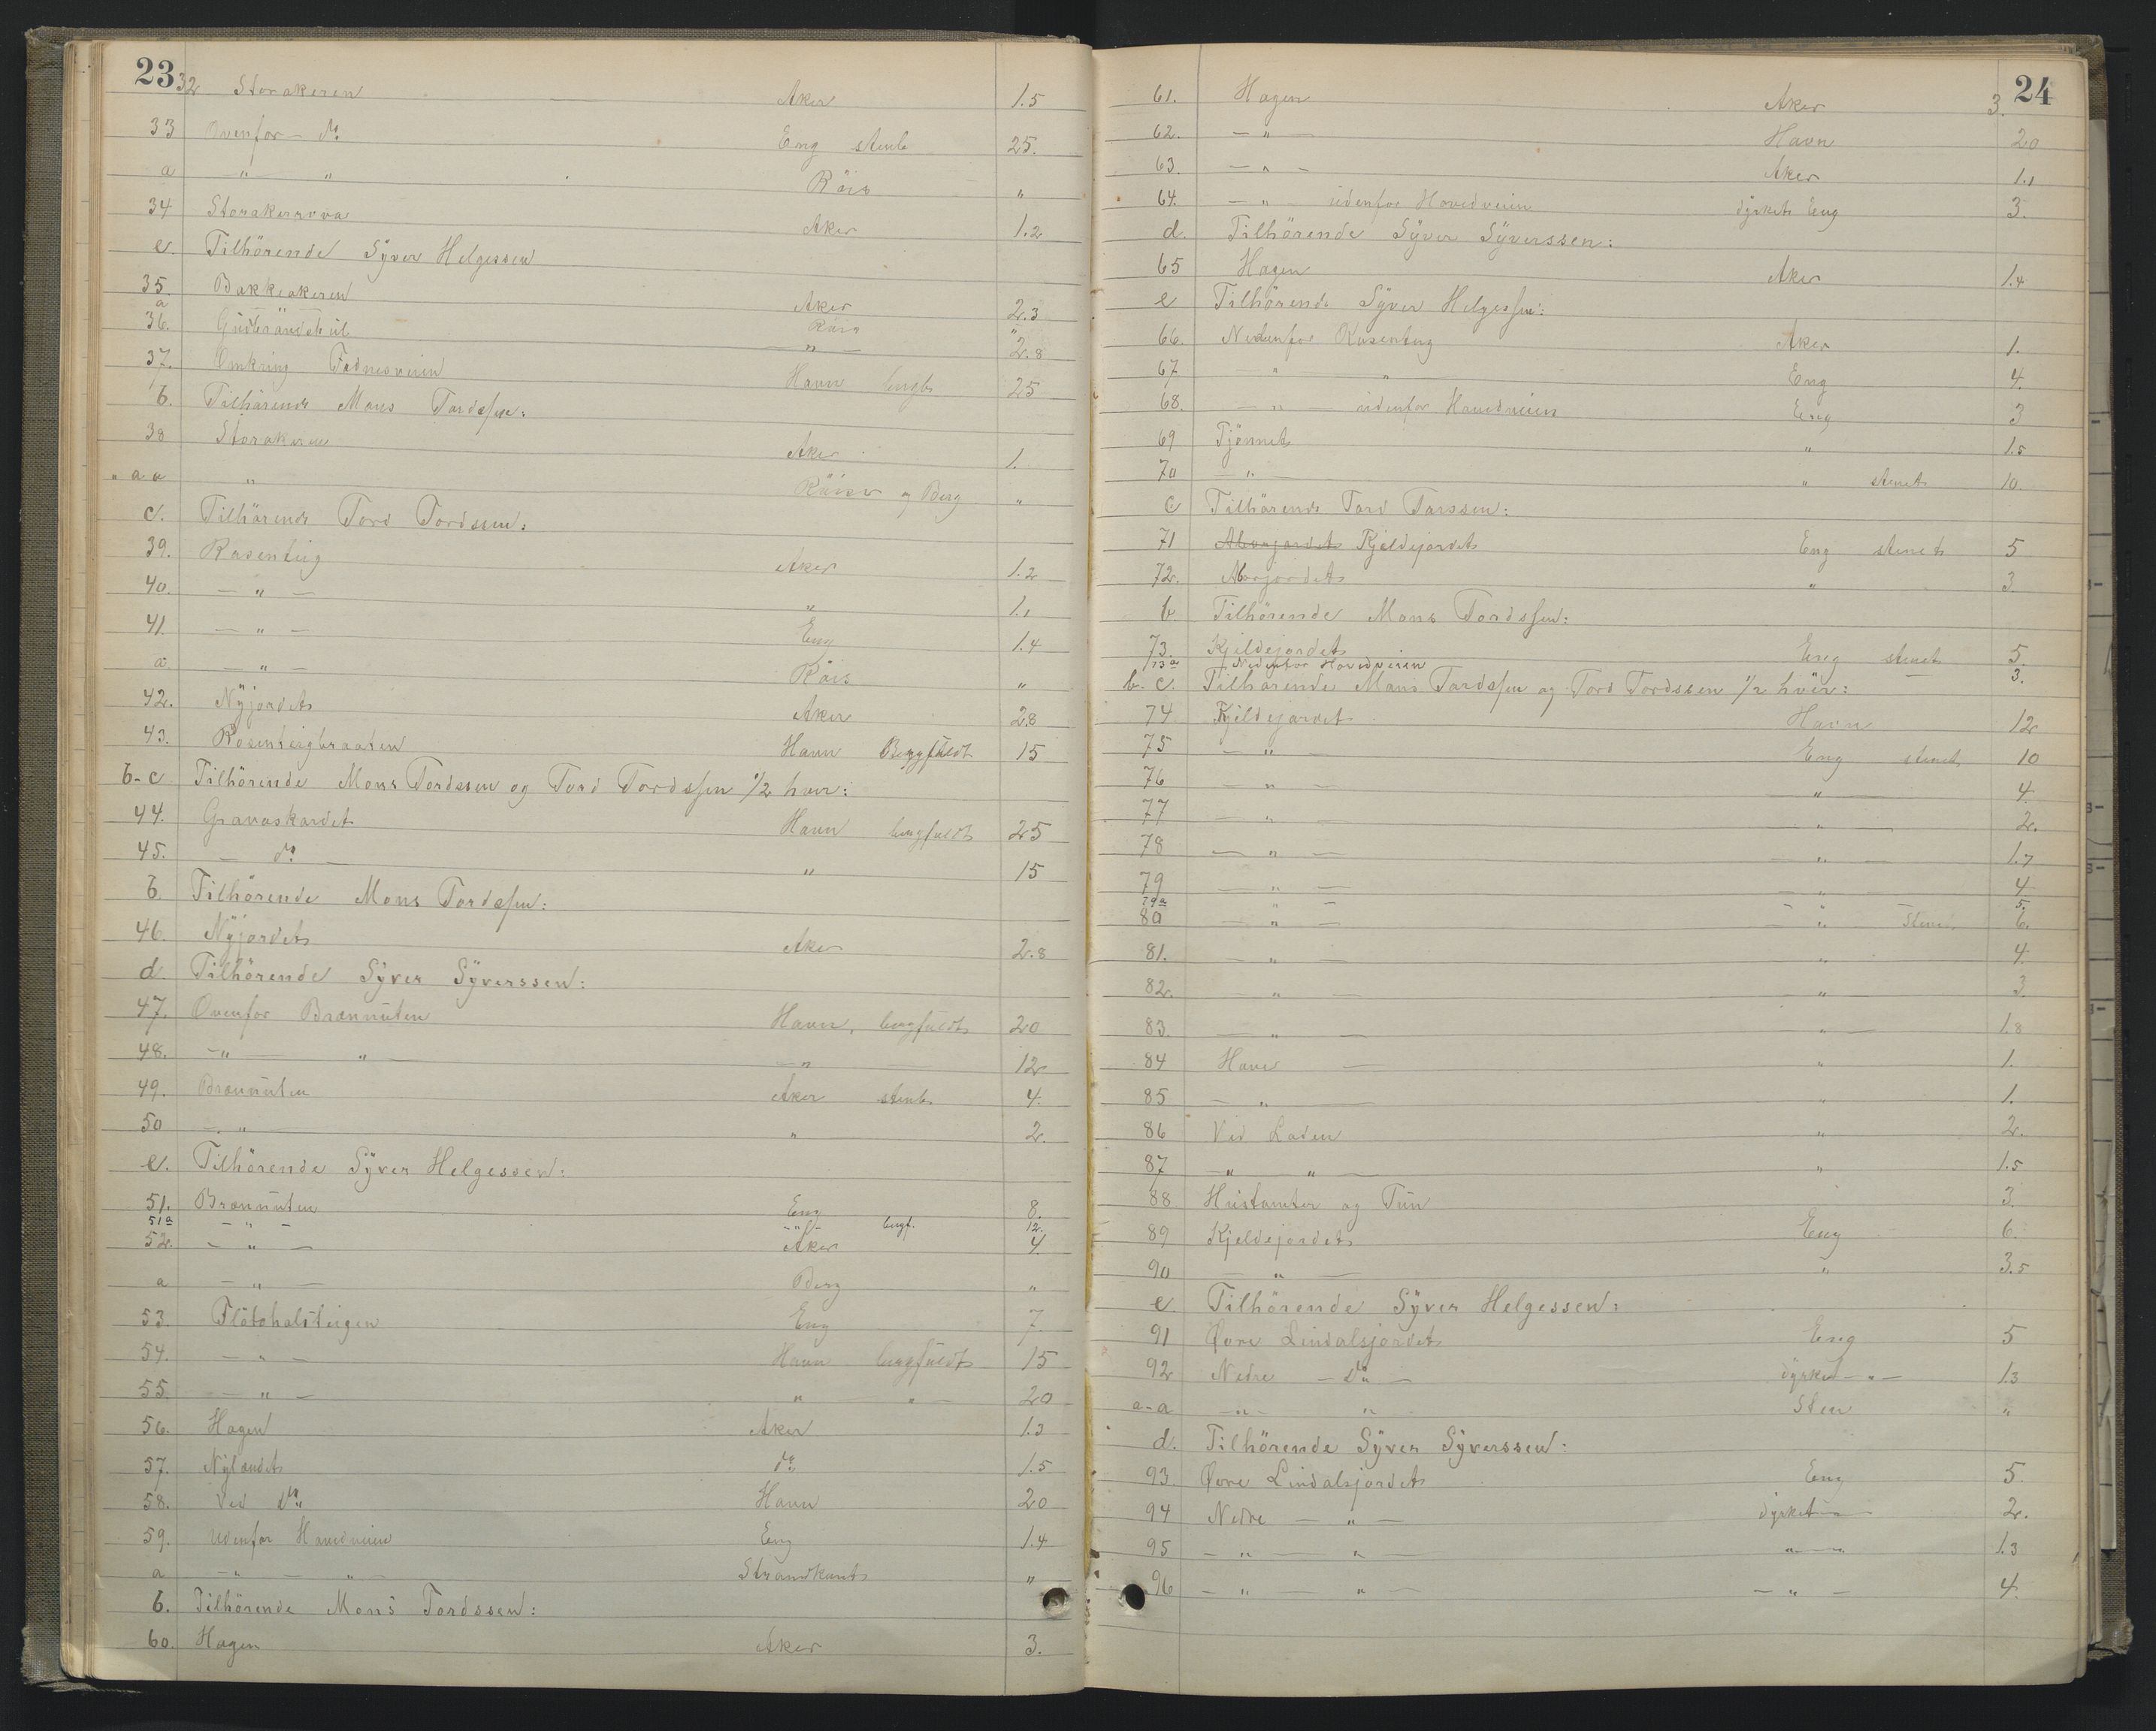 23
32 Storakeren Aker 1.5
33 Ovenfor - do Eng stenb 25.
a " " Röis "
34 Storakerrova Aker 1.2
e. Tilhörende Syver Helgessen
35. Bakkeakeren Aker 2.3
a Röis "
36. - " - 2.8
37. Omkring Havn bergb 25
b. Tilhörende Mons Tordssen:
38 Storakeren Aker 1.
" a-a " Röiser og Berg "
c. Tilhörende Tord Tordssen:
39. Rosenteig Aker 1.2
40. - " - " 1.1
41. - " - Eng 1.4
a. - " - Röis "
42. Nyjordet Aker 2.8
43. Rosenteigbraaten Havn Bergfuldt 15
b-c Tilhörende Mons Tordssen og Tord Tordssen 1/2 hver:
44. Granaskardet Havn bergfuldt 25
45. - do - " 15
b. Tilhörende Mons Tordssen:
46. Nyjordet Aker 2.8
d. Tilhörende Syver Syverssen:
47. Ovenfor Brænnuten Havn, bergfuldt 20
48. - " - " - - " - 12
49. Brænnuten Aker stenb. 4.
50 - " - " 2.
e. Tilhörende Syver Helgessen:
51. Brænnuten Eng 8.
51a - " - - " - bergf. 12.
52. - " - Aker 4.
a - " - Berg "
53. Flötohalsteigen Eng 7.
54. - " - Havn bergfuldt 15
55. - " - " " - 20
56. Hagen Aker 1.3
57. Nylændet do 1.5
58. Ved do Havn 20
59. Udenfor Hovedveien Eng 1.4
a - " - " - Strandkant "
b. Tilhörende Mons Tordssen:
60. Hagen Aker 3.
24
61. Hagen Aker 3.
62. - " - Havn 20
63. - " - Aker 1.1
64. - " - udenfor Hovedveien dyrket Eng 3.
d. Tilhörende Syver Syverssen:
65 Hagen Aker 1.4
e Tilhörende Syver Helgessen:
66. Nedenfor Rosenteig Aker 1.
67 - " - " - Eng 4.
68. - " - udenfor Hovedveien Eng 3
69 Tjönnet " 1.5
70 - " - " stenet 10.
c Tilhörende Tord Tordssen:
71 Kjeldejordet Eng stenet 5
72. " 3.
b Tilhörende Mons Tordssen:
73. Kjeldejordet Eng stenet 5.
73a Nedenfor Hovedveien - 3.
b-c. Tilhörende Mons Tordssen og Tord Tordssen 1/2 hver:
74 Kjeldejordet Havn 12
75 - " - Eng stenet 10
76 - " - - " - 4.
77 - " - - " - 2.
78 - " - - " - 1.7
79 - " - - " - 4
79a " - - " 5.
80 - " - - " Stenet 6.
81. - " - " 4.
82. - " - " 3.
83. - " - " - 1.8
84 Have - " 1.
85 - " - " 1.
86 Ved Laden " 2.
87 - " " - " 1.5
88 Hustomter og Tun 3.
89 Kjeldejordet Eng 6.
90 - " - " 3.5
e Tilhörende Syver Helgessen:
91 Øvre Lindalsjordet Eng 5
92 Nedre - do - dyrket - " - 1.3
a-a - " - " Sten "
d. Tilhörende Syver Syverssen:
93. Øvre Lindalsjordet Eng 5.
94 Nedre - " - dyrket - " - 2.
95 - " - " - " - " 1.3
96 - " - " - - " - 4.